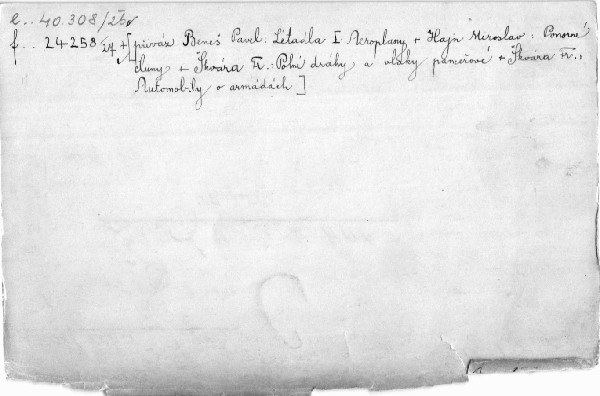 e.. 40.308/26a
f.. 24258/24 + [přiváz Beneš Pavel: Létadla I Aeroplany + Hajn Miroslav: Ponorné
čluny + Škvára Fr.: Polní dráhy a vlaky pancéřové + Škvára Fr.,
Automobily v armádách]